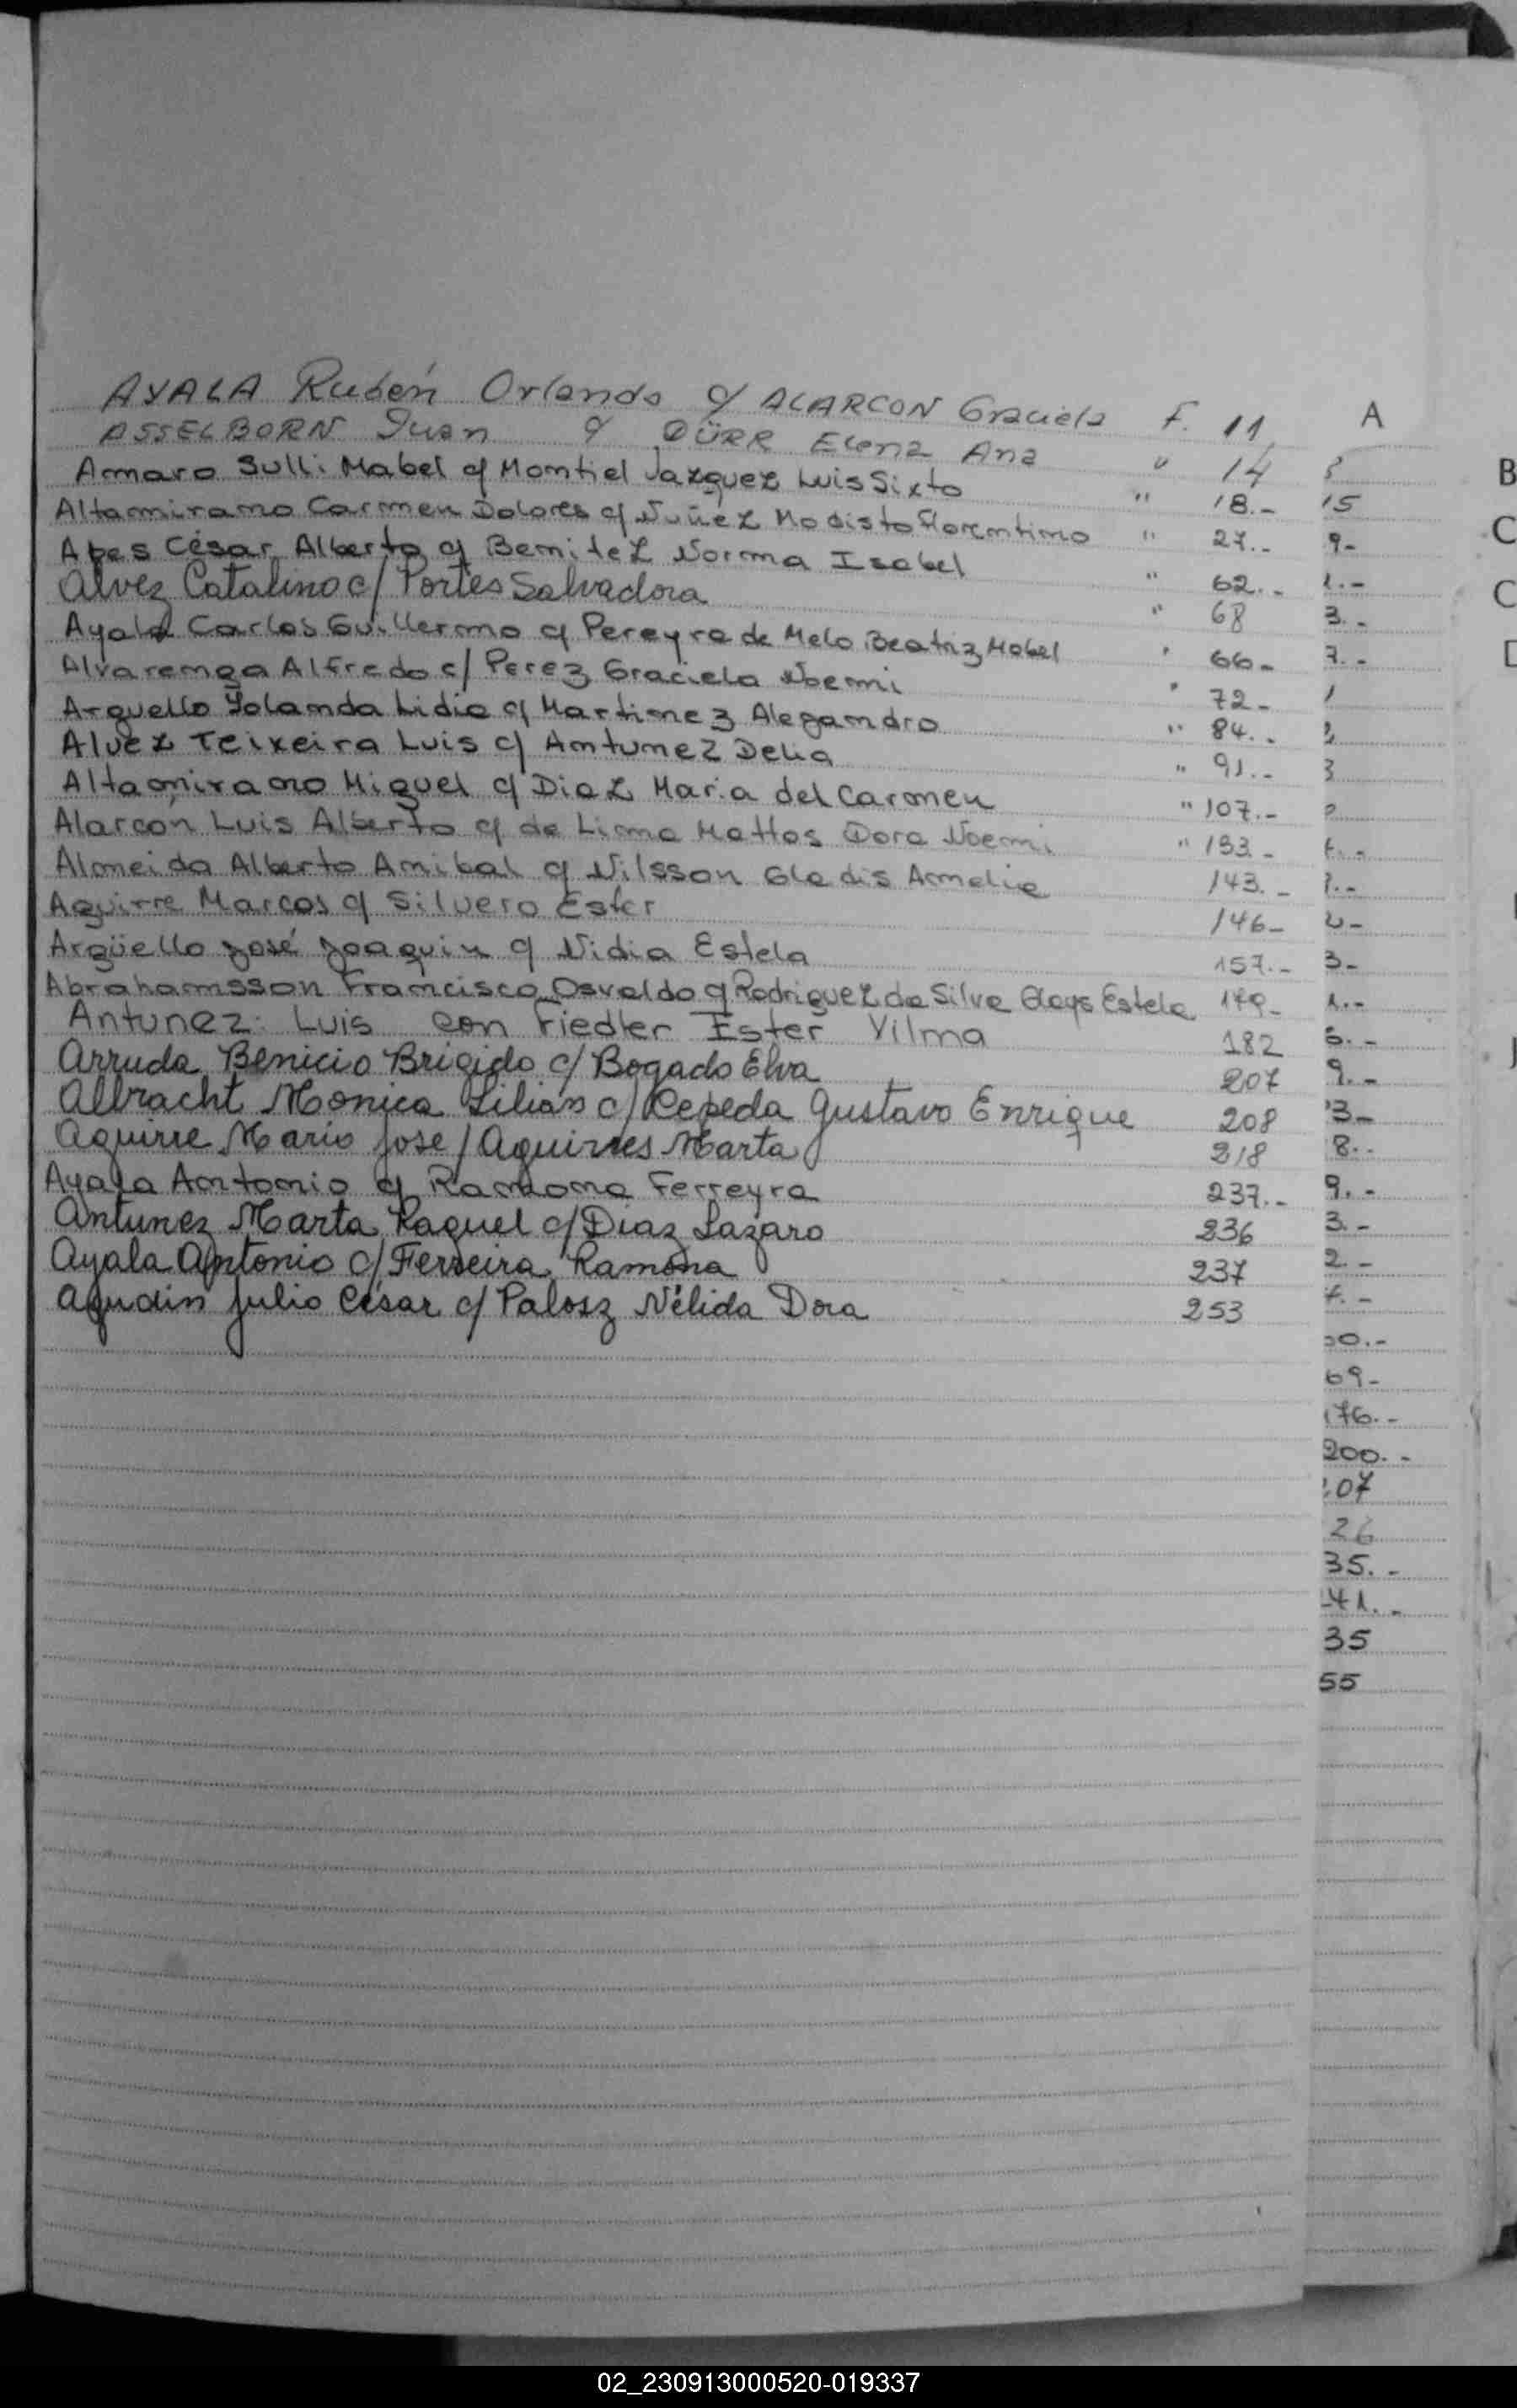 A
AYALA Rubén Orlando c/ ALARCON Graciela F. 11
ASSELBORN Juan c/ DÜRR Elena Ana " 14
Amaro Sulli Mabel c/ Montiel Vazquez Luis Sixto " 18.-
Altamirano Carmen Dolores c/ Nuñez Modisto Florentino " 27.-
Apes César Alberto c/ Benitez Norma Isabel " 62.-
Alvez Catalino c/ Portes Salvadora " 68
Ayala Carlos Guillermo c/ Pereyra de Melo Beatriz Mabel " 66-
Alvarenga Alfredo c/ Perez Graciela Noemi " 72-
Arguello Yolanda Lidia c/ Martinez Alegandro " 84.-
Alvez Teixeira Luis c/ Antunez Delia " 91.-
Altamirano Miguel c/ Diaz Maria del Carmen " 107.-
Alarcon Luis Alberto c/ de Lima Mattos Dora Noemi " 133-
Almeida Alberto Anibal c/ Nilsson Gladis Amelia 143.-
Aguirre Marcos c/ Silvero Ester 146-
Argüello José Joaquin c/ Nidia Estela 157.-
Abrahamsson Francisco Osvaldo c/ Rodriguez da Silva Glays Estela 179-
Antunez Luis con Fiedler Ester Vilma 182
Arruda Benicio Brigido c/ Bogado Elva 207
Albracht Monica Lilian c/ Cepeda Gustavo Enrique 208
Aguirre Mario Jose / Aguirres Marta 218
Ayala Antonio c/ Ramona Ferreyra 237.-
Antunez Marta Raquel c/ Diaz Lazaro 236
Ayala Antonio c/ Ferreira Ramona 237
Agudin Julio César c/ Palosz Nélida Dora 253
15
9-
3.-
7.-
3
3-
9.-
3-
8.-
9.-
3.-
2.-
69-
176.-
200.-
07
26
35.-
41.-
35
55
B
C
C
02_230913000520-019337